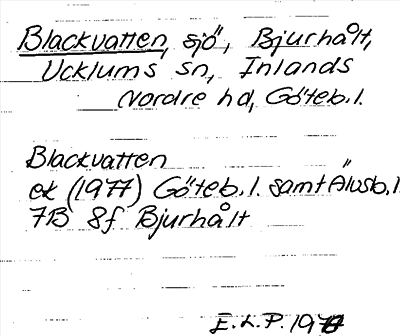 Blackvatten, sjö, Bjurhålt,
Ucklums sn, Inlands
Nordre hd, Göteb. l.
Blackvatten
ek (1977) Göteb. l. samt Älvsb. l.
7B 8f Bjurhålt
E.L.P. 19